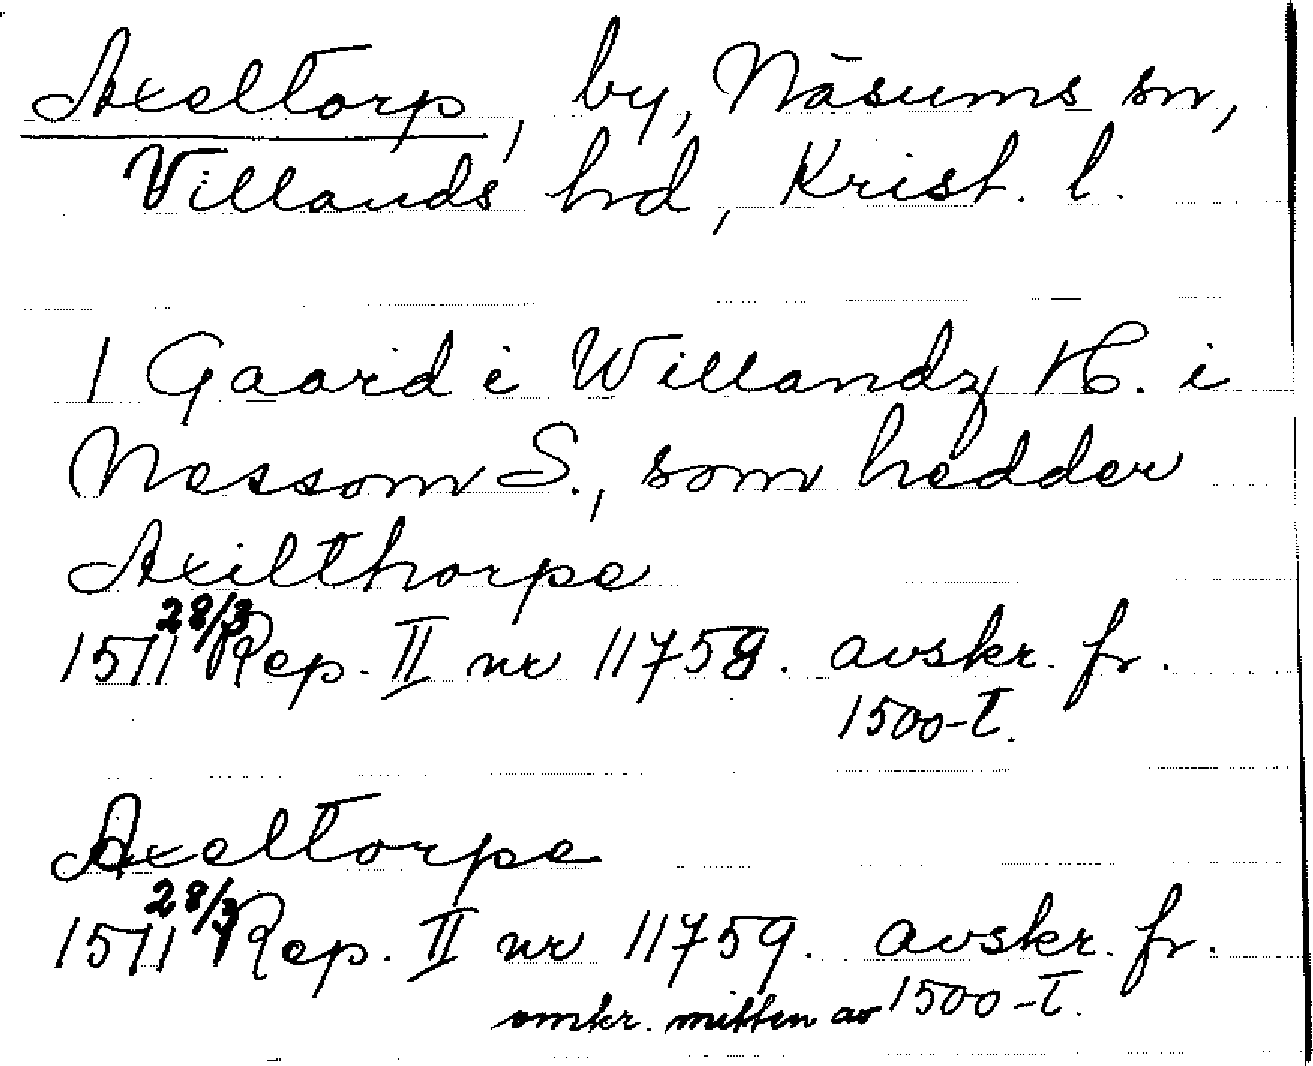 Axeltorp, by, Näsums sn,
Villands hd, Krist. l.
1 Gaard i Willandz H. i
Nessom S., som hedder
Axilthorpe
1511 28/3 Rep. II nr 11758. avskr. fr.
1500-t.
Axeltorpe
1511 28/3 Rep. II nr 11759. avskr. fr.
omkr. mitten av 1500-t.